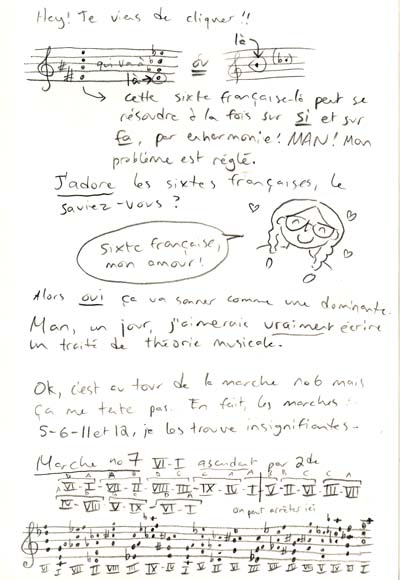 Hey! Je viens de cliquer!!
qui va à
là
ou
là
cette sixte française-là peut se
résoudre à la fois sur si et sur
fa, par enharmonie! MAN! Mon
problème est réglé.
J'adore les sixtes françaises, le
saviez-vous?
sixte française,
mon amour!
Alors oui ça va sonner comme une dominante.
Man, un jour, j'aimerais vraiment écrire
un traité de théorie musicale.
Ok, c'est au tour de la marche no6 mais
ça me tente pas. En fait, les marches
5-6-11 et 12, je les trouve insignifiantes-
Marche no 7 VI-I ascendant par 2de
VI-I-VII-II-VIII-III-IX-IV-I
IV-VI-I-V-IX-VI-I
on peut arrêter ici